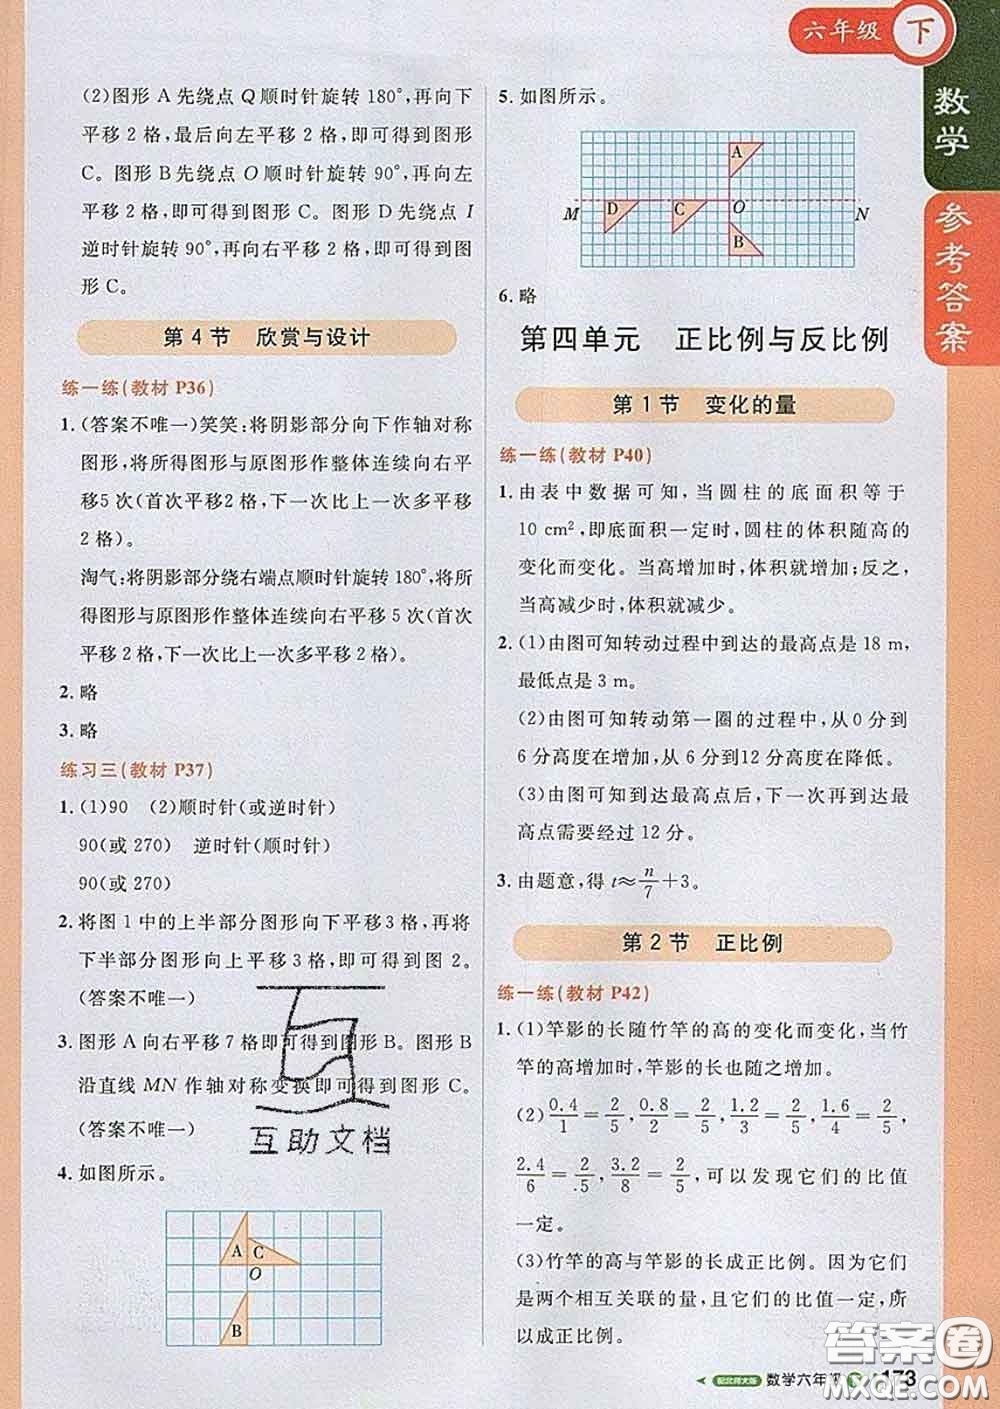 六年级 下
数学
参考答案
(2)图形 A 先绕点 Q 顺时针旋转 180°,再向下
平移 2 格,最后向左平移 2 格,即可得到图形
C。图形 B 先绕点 O 顺时针旋转 90°,再向左
平移 2 格,即可得到图形 C。图形 D 先绕点 I
逆时针旋转 90°,再向右平移 2 格,即可得到图
形 C。
第 4 节 欣赏与设计
练一练(教材 P36)
1. (答案不唯一)笑笑:将阴影部分向下作轴对称
图形,将所得图形与原图形作整体连续向右平
移5 次(首次平移2 格,下一次比上一次多平移
2 格)。
淘气:将阴影部分绕右端点顺时针旋转 180°,将所
得图形与原图形作整体连续向右平移 5 次(首次
平移 2 格,下一次比上一次多平移 2 格)。
2. 略
3. 略
练习三(教材 P37)
1. (1)90 (2)顺时针(或逆时针)
90(或 270) 逆时针(顺时针)
90(或 270)
2. 将图 1 中的上半部分图形向下平移3 格,再将
下半部分图形向上平移 3 格,即可得到图 2。
(答案不唯一)
3. 图形 A 向右平移 7 格即可得到图形 B。图形 B
沿直线 MN 作轴对称变换即可得到图形 C。
(答案不唯一)
4. 如图所示。
A C
O
B
互助文档
5. 如图所示。
A
M D C O N
B
6. 略
第四单元 正比例与反比例
第 1 节 变化的量
练一练(教材 P40)
1. 由表中数据可知,当圆柱的底面积等于
10 cm²,即底面积一定时,圆柱的体积随高的
变化而变化。当高增加时,体积就增加;反之,
当高减少时,体积就减少。
2. (1)由图可知转动过程中到达的最高点是 18 m,
最低点是 3 m。
(2)由图可知转动第一圈的过程中,从 0 分到
6 分高度在增加,从 6 分到12 分高度在降低。
(3)由图可知到达最高点后,下一次再到达最
高点需要经过 12 分。
3. 由题意,得 t≈n/7+3。
第 2 节 正比例
练一练(教材 P42)
1. (1)竿影的长随竹竿的高的变化而变化,当竹
竿的高增加时,竿影的长也随之增加。
(2)0.4/1=2/5,0.8/2=2/5,1.2/3=2/5,1.6/4=2/5,
2.4/6=2/5,3.2/8=2/5,可以发现它们的比值
一定。
(3)竹竿的高与竿影的长成正比例。因为它们
是两个相互关联的量,且它们的比值一定,所
以成正比例。
配北师大版 数学六年级 173
答案圈
MXQE.COM